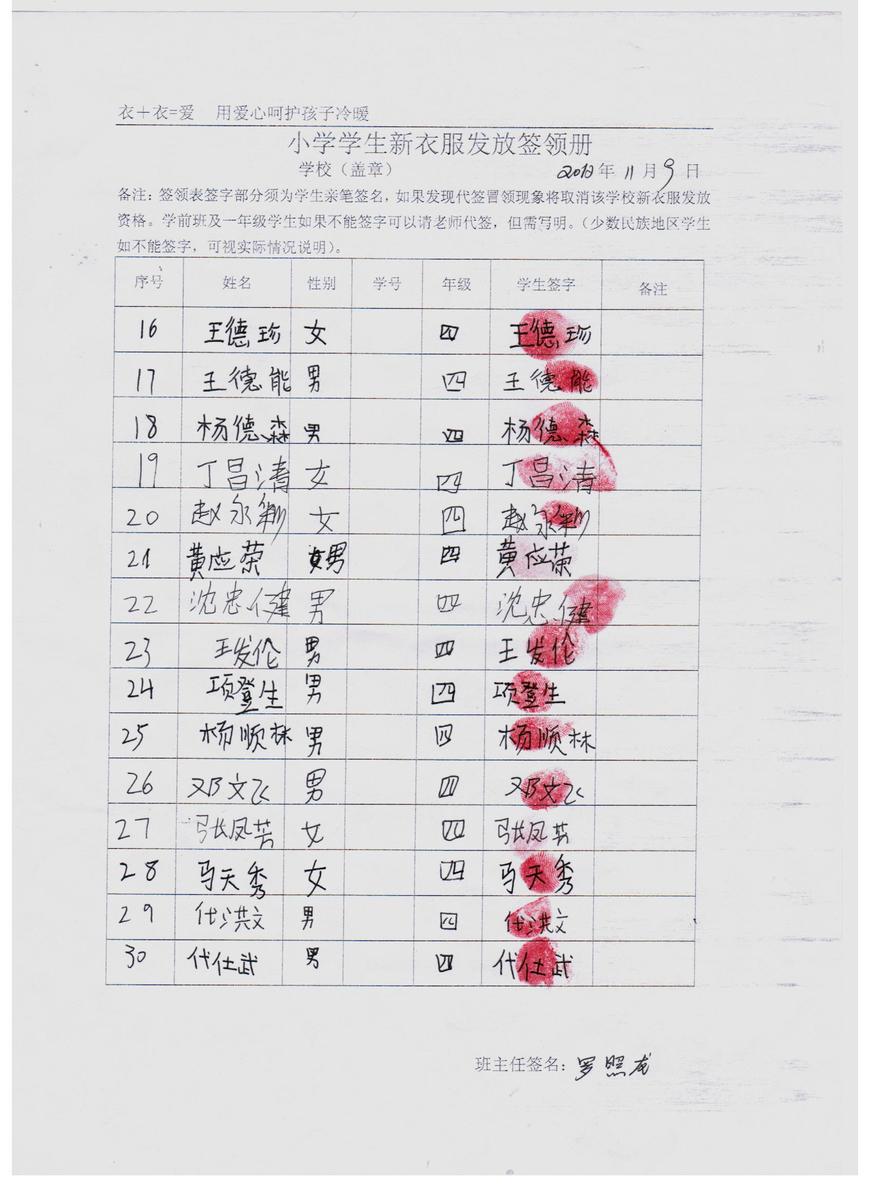 衣＋衣=爱 用爱心呵护孩子冷暖
小学学生新衣服发放签领册
学校（盖章） 2012年11月9日
备注：签领表签字部分须为学生亲笔签名，如果发现代签冒领现象将取消该学校新衣服发放
资格。学前班及一年级学生如果不能签字可以请老师代签，但需写明。（少数民族地区学生
如不能签字，可视实际情况说明）。
序号 姓名 性别 学号 年级 学生签字 备注
16 王德珍 女 四 王德珍
17 王德能 男 四 王德能
18 杨德森 男 四 杨德森
19 丁昌清 女 四 丁昌清
20 赵永 女 四 赵永
21 黄应荣 男 四 黄应荣
22 沈忠健 男 四 沈忠健
23 王发伦 男 四 王发伦
24 项登生 男 四 项登生
25 杨顺林 男 四 杨顺林
26 邓文飞 男 四 邓文飞
27 张凤芳 女 四 张凤芳
28 马天秀 女 四 马天秀
29 代洪文 男 四 代洪文
30 代仕武 男 四 代仕武
班主任签名：罗照龙